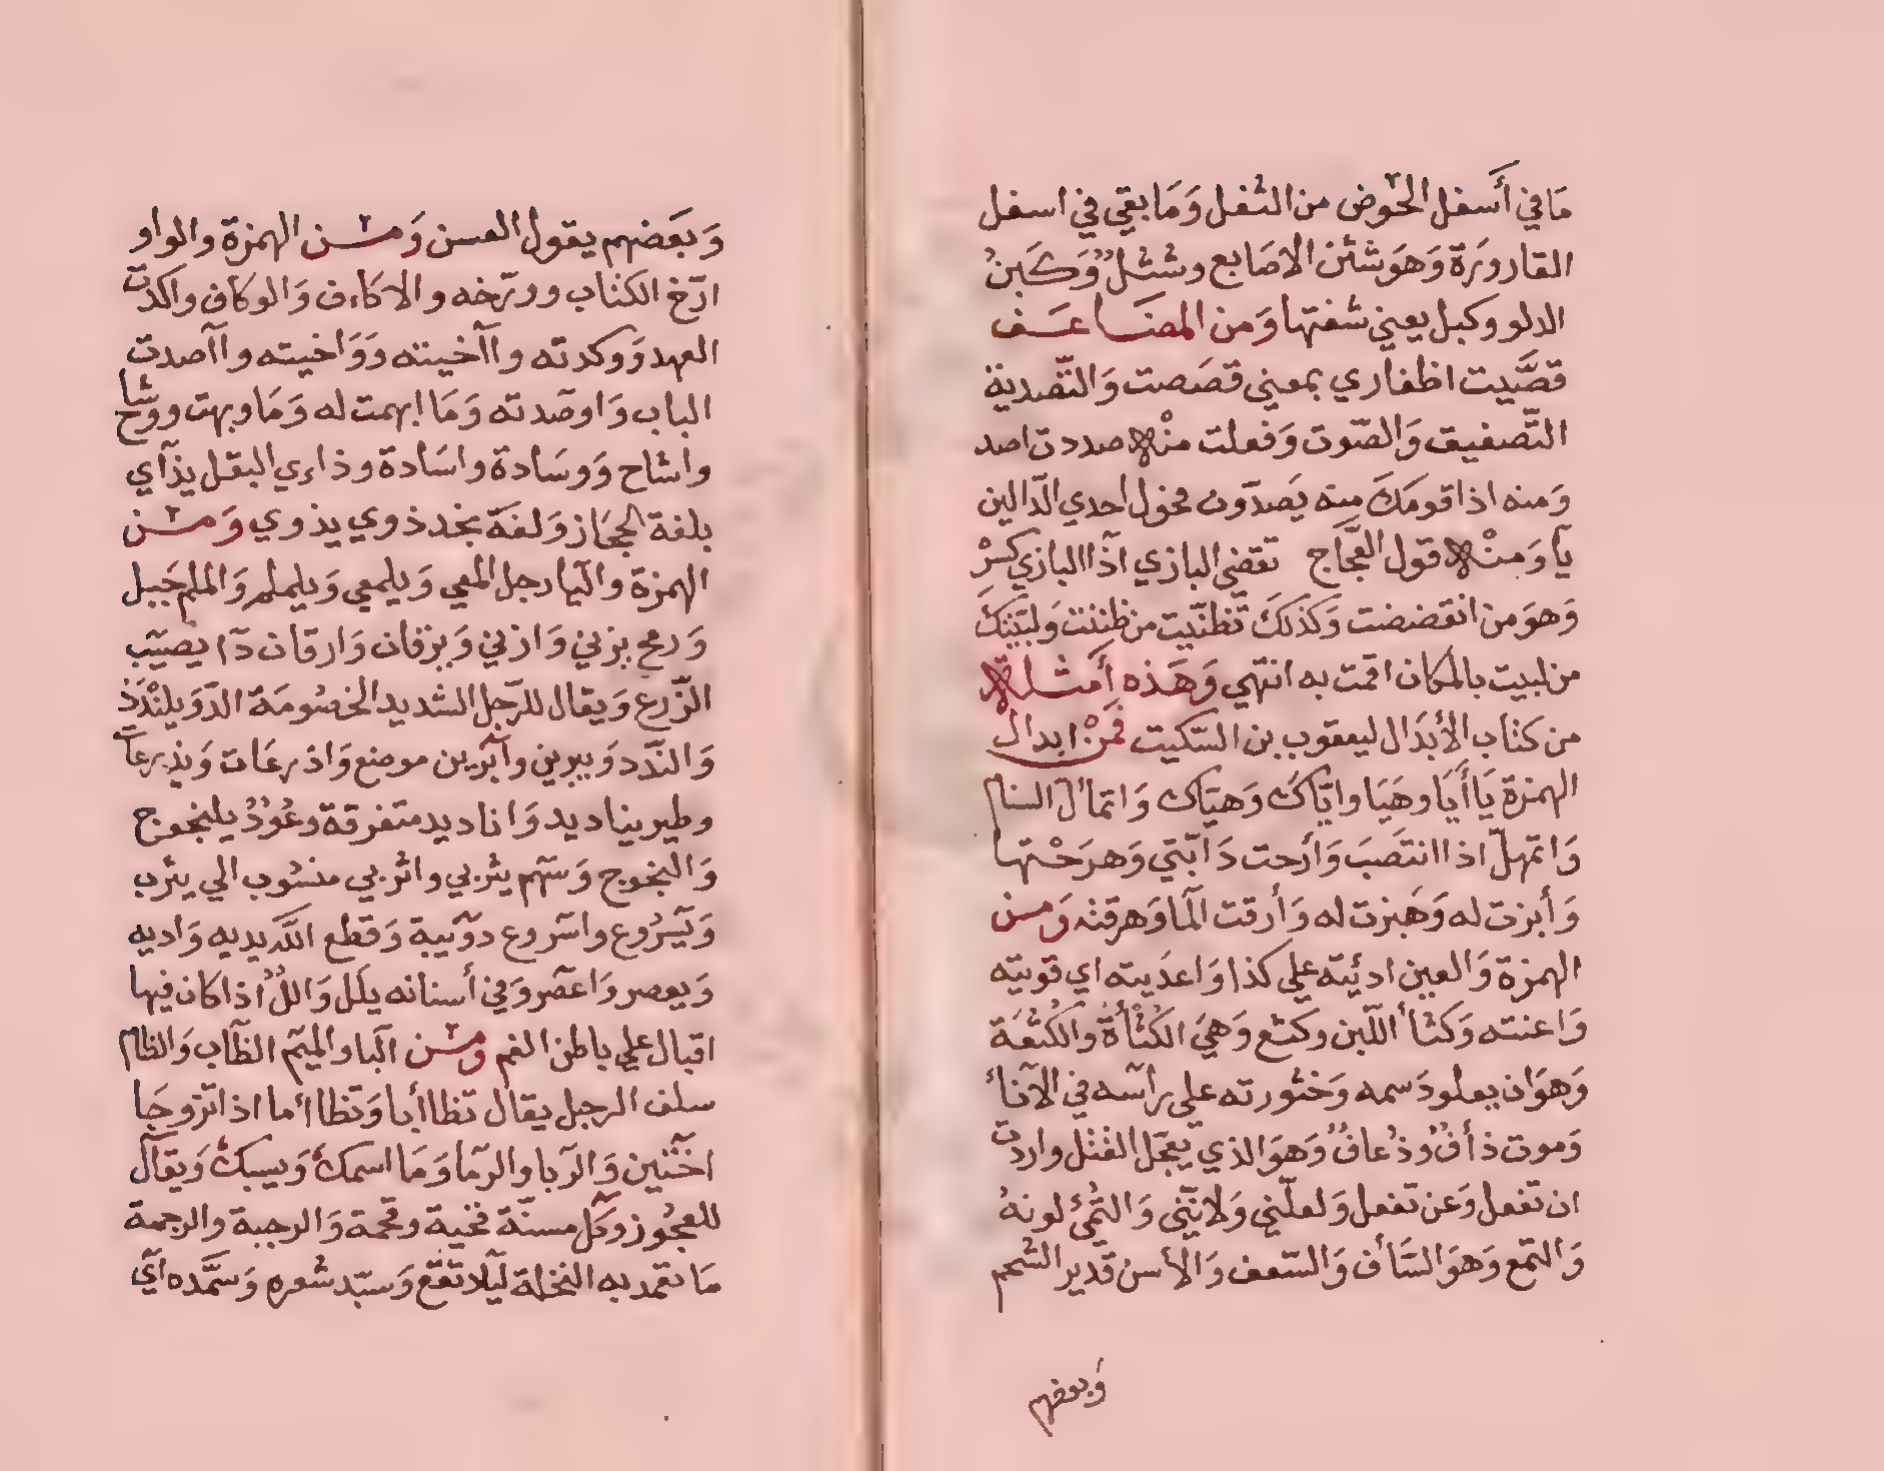 مَا في أَسفل الحَوض من الثفل وَمَا بقي في اسفل
القارورَة وَهوَ شثن الاصَابع وشثلٌ وَكَبنُ
الدلو وكبل يعني شفتها وَمن المضَاعَف
قصَّيت اظفاري بمعني قصَصت وَالتّصدية
التّصفيق وَالصّوت وَفعلت منْه صددت اصد
وَمنه اذا قومَكَ منه يَصدّون فحول احدي الدّالين
يآ وَمنْه قول العجَّاج تقضي البازي اذا البازي كسرْ
وَهوَ من انقضضت وَكذلكَ تظنّيت من ظننت وَلبّيتكَ
من لبيت بالمكان اقمت به انتهي وَهَذه أَمثلة
من كتاب الأبدَال ليعقوب بن السّكيت فمنْ ابدال
الهمزة يَا أَيَا وهَيَا وايّاكَ وَهيّاك وَاتمألّ السنام
وَاتمهلّ اذا انتصَبَ وَأرحت دَابّتي وَهرَحْتها
وَأبزت له وَهَبزت له وَأرقت المآ وَهرقته وَمن
الهمزة وَالعين ادئيته علي كذا وَاعدَيته اي قويته
وَاعنته وَكثأ اللّبن وكثع وَهيَ الكُثْأة والكُثْعَة
وَهوَ ان يعلو دَسمه وَخثورته علي رأسه في الآنأ
وَموت ذأفٌ وذعافٌ وَهوَ الذي يعجّل القتل واردت
ان تفعل وَعن تفعل وَلعلّني وَلانّني وَالتمئ لونهُ
وَالتمع وَهوَ السَّأف وَالسّعف وَالاسن قدير الشحم
وَبعضهم
وَبعَضهم يقول العسن وَمن الهمزة والواو
ارّخ الكتاب وورّخه والاكاءف وَالوكاف واكدّت
العهد وَوكدته واآخيته وَوَاخيته واآصدت
الباب وَاوصَدته وَمَا ابهمت له وَمَا وبهت ووشاح
واشاح وَوسَادة واسَادة وذاءي البقل يذآي
بلغة الحجَاز وَلغَة نجد ذوي يذوي وَمن
الهمزة واليآ رجل المعي وَيلمعي وَيلملم وَالملم جَبل
وَرمح يزني وَازني وَيرقان وَارقان دآ يصيب
الزّرع وَيقال للرّجل الشديد الخصُومَة الدّ وَيلنْدَد
وَالندّد وَيبرين وآبرين موضع وَاذرعَات وَيذرعات
وطير يناديد وَاناديد متفرقة وعُودٌ يلنجوج
وَالنجوج وَسَهم يثربي واثربي منسُوب الي يثرب
وَيَسْرُوع واسروع دوَيبة وَقطع اللّه يديه وَاديه
وَيعصر وَاعصر وَفي أسنانه يلَل وَاللٌ اذا كان فيها
اقبال علي باطن الفم وَمن البآ والميم الظآب وَالظام
سلف الرجل يقال تظاأبا وَتظاأما اذا تزوجَا
اختين وَالربا والرما وَمَا اسمكَ وَيسبكَ وَيقال
للعجُوز وَكل مسنّة قحبة وقحمة وَالرجبة والرجمة
مَا تعمد به النخلة لَيلا تقع وَسبّد شعره وَسمَّده أي